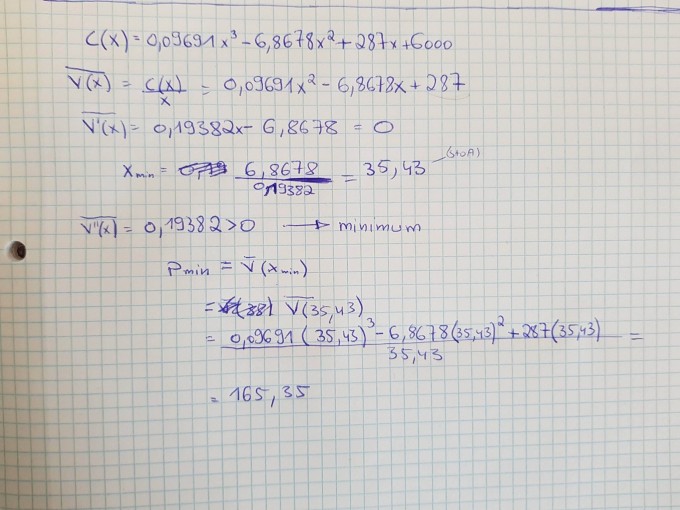 C(x) = 0,09691x³ - 6,8678x² + 287x + 6000
V̅(x) = C(x)/x = 0,09691x² - 6,8678x + 287
V̅'(x) = 0,19382x - 6,8678 = 0
x min = 6,8678/0,19382 = 35,43 (StoA)
V̅''(x) = 0,19382 > 0 → minimum
Pmin = V̅(xmin)
= V̅(35,43)
= 0,09691(35,43)³ - 6,8678(35,43)² + 287(35,43) / 35,43 =
= 165,35